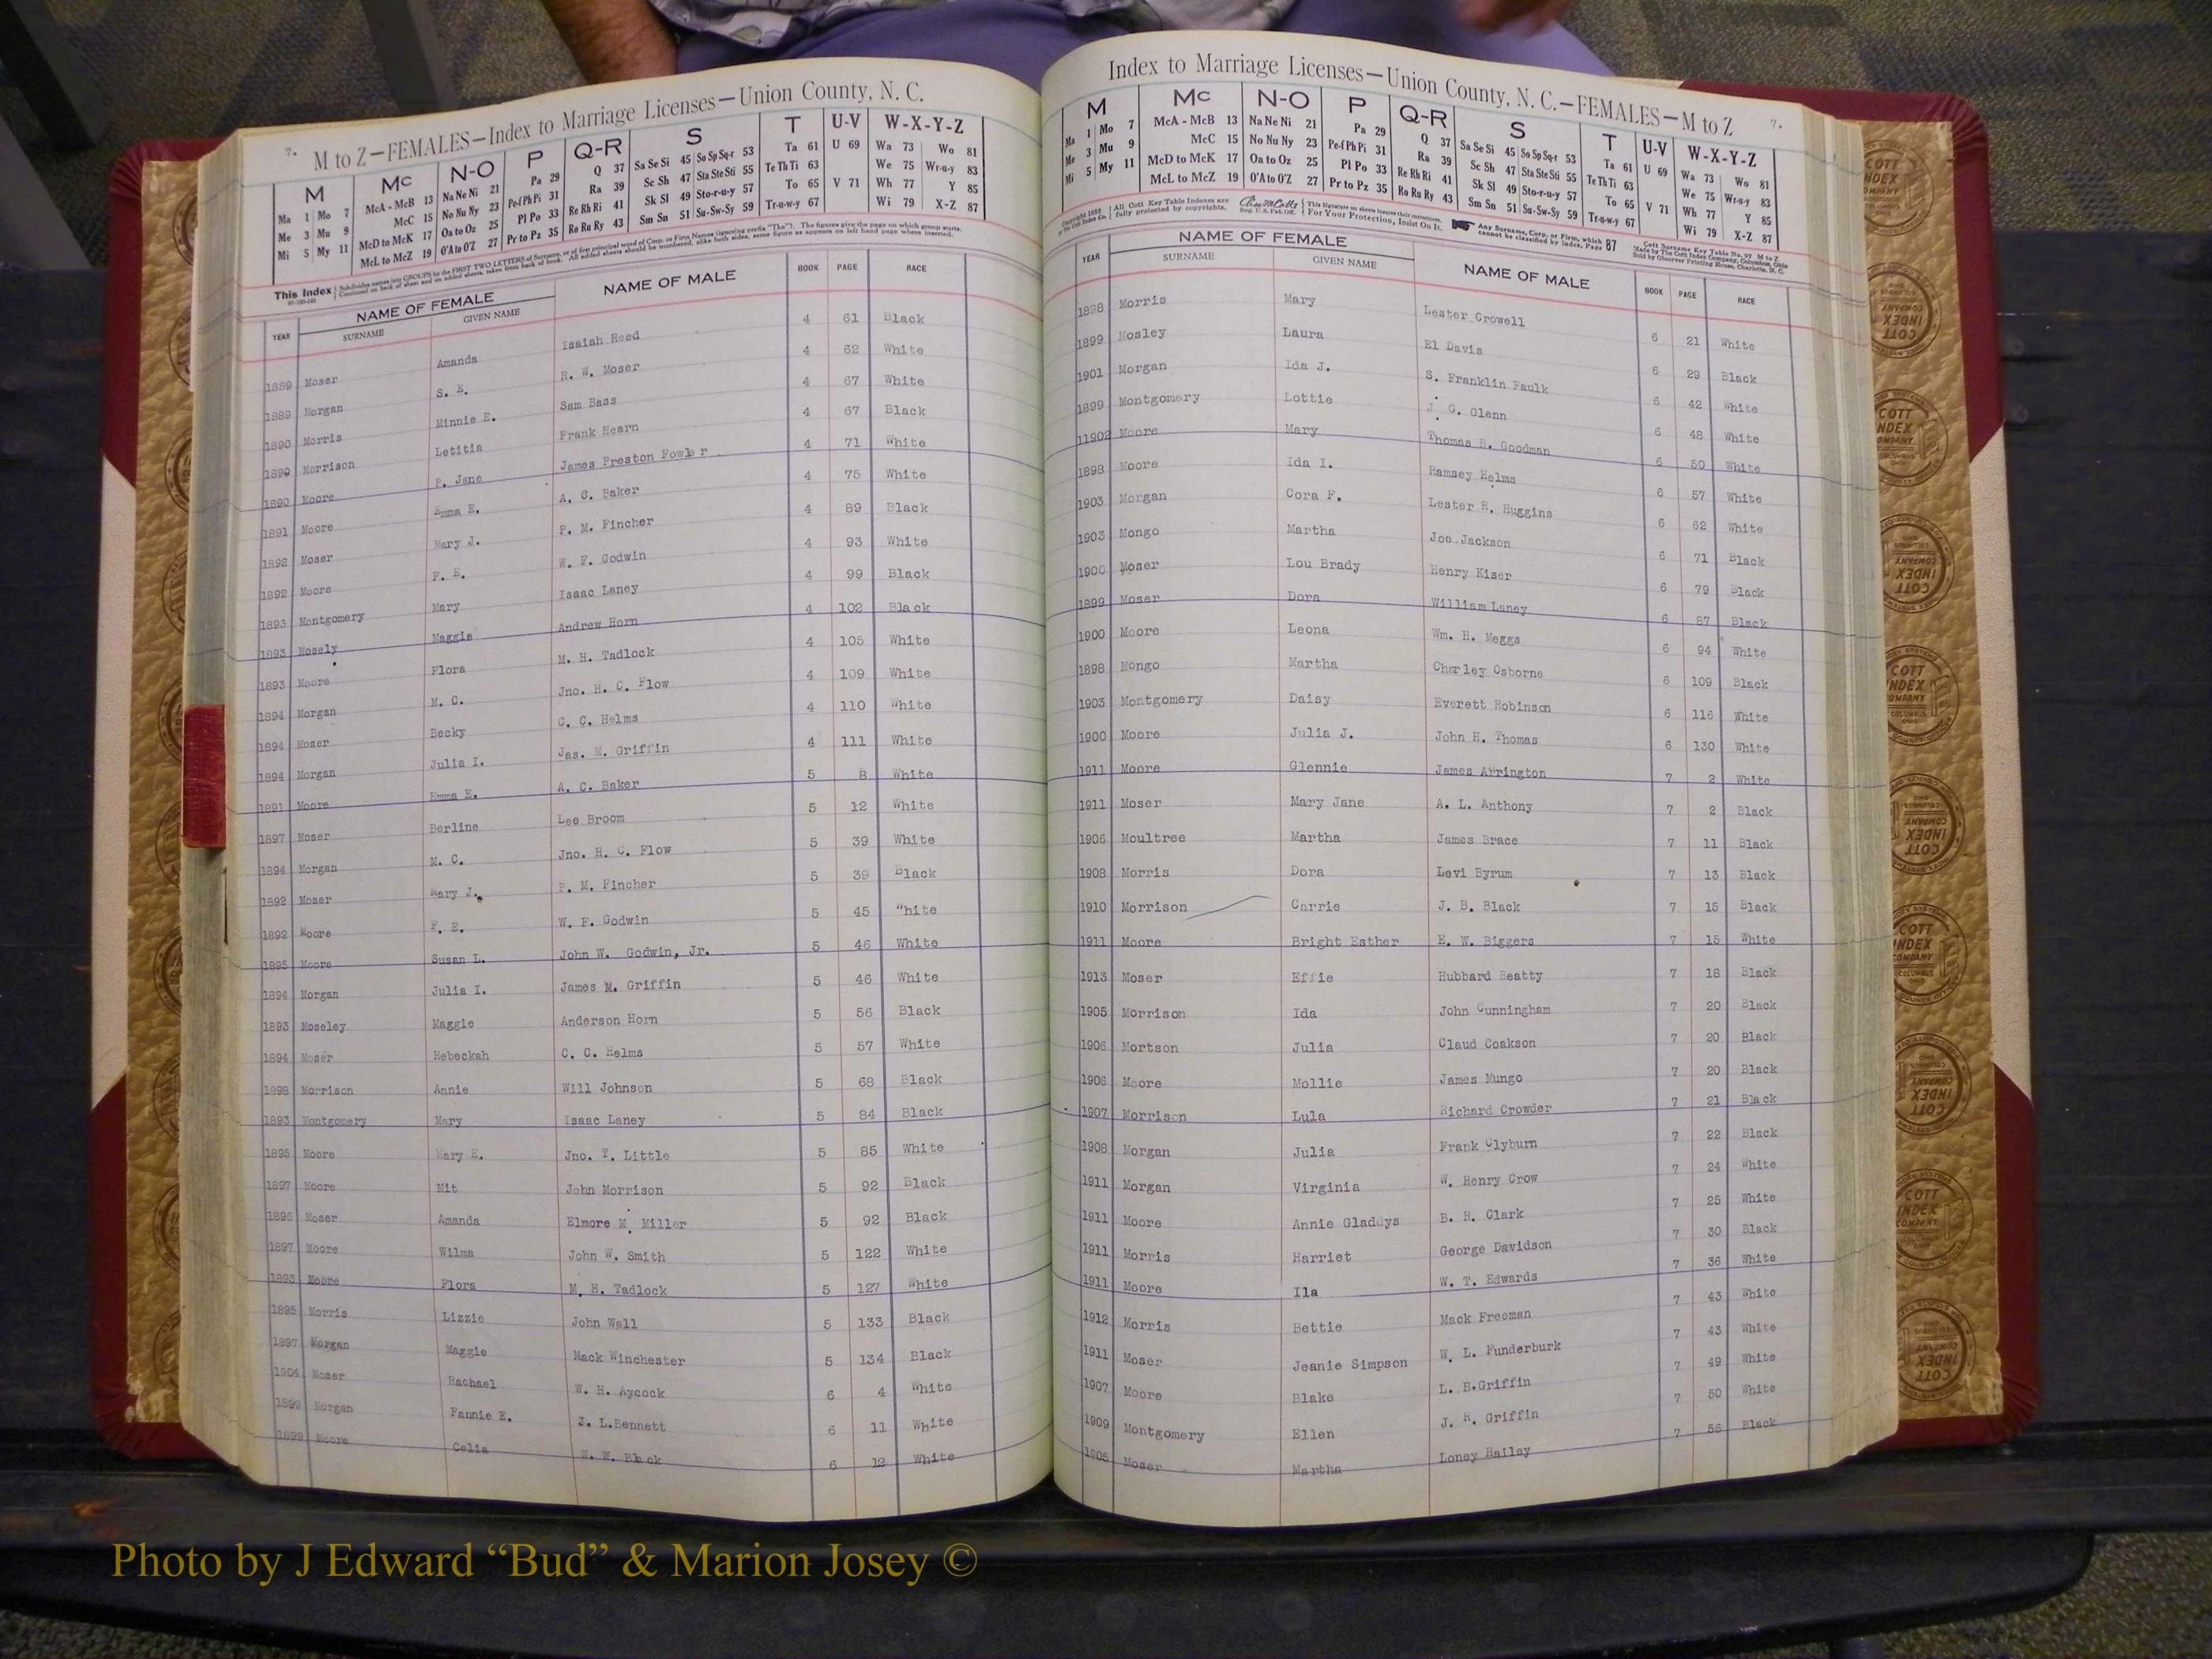 7. M to Z—FEMALES—Index to Marriage Licenses—Union County, N. C.
M Mc N-O P Q-R S T U-V W-X-Y-Z
Ma 1 Mo 7 McA - McB 13 Na Ne Ni 21 Pa 29 Q 37 Sa Se Si 45 So Sp Sq-r 53 Ta 61 U 69 Wa 73 Wo 81
Me 3 Mu 9 McC 15 No Nu Ny 23 Pe-f Ph Pi 31 Ra 39 Sc Sh 47 Sta Ste Sti 55 Te Th Ti 63 We 75 Wr-u-y 83
Mi 5 My 11 McD to McK 17 Oa to Oz 25 Pl Po 33 Re Rh Ri 41 Sk Sl 49 Sto-r-u-y 57 To 65 V 71 Wh 77 Y 85
McL to McZ 19 O'A to O'Z 27 Pr to Pz 35 Ro Ru Ry 43 Sm Sn 51 Su-Sw-Sy 59 Tr-u-w-y 67 Wi 79 X-Z 87
This Index
YEAR NAME OF FEMALE SURNAME GIVEN NAME NAME OF MALE BOOK PAGE RACE
1889 Moser Amanda Isaiah Reed 4 61 Black
1889 Morgan S. E. R. W. Moser 4 62 White
1890 Morris Minnie E. Sam Bass 4 67 White
1890 Morrison Letitia Frank Hearn 4 67 Black
1890 Moore P. Jane James Preston Fowler 4 71 White
1891 Moore Emma E. A. C. Baker 4 75 White
1892 Moser Mary J. P. M. Fincher 4 89 Black
1892 Moore F. E. W. F. Godwin 4 93 White
1893 Montgomery Mary Isaac Laney 4 99 Black
1893 Mosely Maggie Andrew Horn 4 102 Black
1893 Moore Flora M. H. Tadlock 4 105 White
1894 Morgan M. C. Jno. H. C. Flow 4 109 White
1894 Moser Becky C. C. Helms 4 110 White
1894 Morgan Julia I. Jas. M. Griffin 4 111 White
1891 Moore Emma E. A. C. Baker 5 8 White
1897 Moser Berline Lee Broom 5 12 White
1894 Morgan M. C. Jno. H. C. Flow 5 39 White
1892 Moser Mary J. P. M. Fincher 5 39 Black
1892 Moore F. E. W. F. Godwin 5 45 "hite
1895 Moore Susan L. John W. Godwin, Jr. 5 46 White
1894 Morgan Julia I. James M. Griffin 5 46 White
1893 Moseley Maggie Anderson Horn 5 56 Black
1894 Moser Rebeckah C. C. Helms 5 57 White
1898 Morrison Annie Will Johnson 5 68 Black
1893 Montgomery Mary Isaac Laney 5 84 Black
1895 Moore Mary E. Jno. T. Little 5 85 White
1897 Moore Mit John Morrison 5 92 Black
1896 Moser Amanda Elmore M. Miller 5 92 Black
1897 Moore Wilma John W. Smith 5 122 White
1893 Moore Flora M. H. Tadlock 5 127 White
1895 Morris Lizzie John Wall 5 133 Black
1897 Morgan Maggie Mack Winchester 5 134 Black
1904 Moser Rachael W. H. Aycock 6 4 White
1899 Morgan Fannie E. J. L.Bennett 6 11 White
1899 Moore Celia W. W. Black 6 12 White
Index to Marriage Licenses—Union County, N. C.—FEMALES—M to Z 7.
M Mc N-O P Q-R S T U-V W-X-Y-Z
Ma 1 Mo 7 McA - McB 13 Na Ne Ni 21 Pa 29 Q 37 Sa Se Si 45 So Sp Sq-r 53 Ta 61 U 69 Wa 73 Wo 81
Me 3 Mu 9 McC 15 No Nu Ny 23 Pe-f Ph Pi 31 Ra 39 Sc Sh 47 Sta Ste Sti 55 Te Th Ti 63 We 75 Wr-u-y 83
Mi 5 My 11 McD to McK 17 Oa to Oz 25 Pl Po 33 Re Rh Ri 41 Sk Sl 49 Sto-r-u-y 57 To 65 V 71 Wh 77 Y 85
McL to McZ 19 O'A to O'Z 27 Pr to Pz 35 Ro Ru Ry 43 Sm Sn 51 Su-Sw-Sy 59 Tr-u-w-y 67 Wi 79 X-Z 87
All Cott Key Table Indexes are fully protected by copyrights. For Your Protection, Insist On It. Any Surname, Corp. or Firm, which cannot be classified by index, Page 87
YEAR NAME OF FEMALE SURNAME GIVEN NAME NAME OF MALE BOOK PAGE RACE
1898 Morris Mary Lester Crowell 6 21 White
1899 Mosley Laura El Davis 6 29 Black
1901 Morgan Ida J. S. Franklin Faulk 6 42 White
1899 Montgomery Lottie J. G. Glenn 6 48 White
11902 Moore Mary Thomas B. Goodman 6 50 White
1898 Moore Ida I. Ramsey Helms 6 57 White
1903 Morgan Cora F. Lester R. Huggins 6 62 White
1903 Mongo Martha Joe Jackson 6 71 Black
1900 Moser Lou Brady Henry Kiser 6 79 Black
1899 Moser Dora William Laney 6 87 Black
1900 Moore Leona Wm. H. Meggs 6 94 White
1898 Mongo Martha Charley Osborne 6 109 Black
1903 Montgomery Daisy Everett Robinson 6 116 White
1900 Moore Julia J. John H. Thomas 6 130 White
1911 Moore Glennie James Arrington 7 2 White
1911 Moser Mary Jane A. L. Anthony 7 2 Black
1906 Moultree Martha James Brace 7 11 Black
1908 Morris Dora Levi Byrum 7 13 Black
1910 Morrison Carrie J. B. Black 7 15 Black
1911 Moore Bright Esther E. W. Biggers 7 15 White
1913 Moser Effie Hubbard Beatty 7 18 Black
1905 Morrison Ida John Cunningham 7 20 Black
1906 Mortson Julia Claud Coakson 7 20 Black
1906 Moore Mollie James Mungo 7 20 Black
1907 Morrison Lula Richard Crowder 7 21 Black
1908 Morgan Julia Frank Clyburn 7 22 Black
1911 Morgan Virginia W. Henry Crow 7 24 White
1911 Moore Annie Gladdys B. R. Clark 7 25 White
1911 Morris Harriet George Davidson 7 30 Black
1911 Moore Ila W. T. Edwards 7 36 White
1912 Morris Bettie Mack Freeman 7 43 White
1911 Moser Jeanie Simpson W. L. Funderburk 7 43 White
1907 Moore Blake L. B.Griffin 7 49 White
1909 Montgomery Ellen J. R. Griffin 7 50 White
1905 Moser Martha Loney Hailey 7 56 Black
COTT INDEX COMPANY COLUMBUS, OHIO
Photo by J Edward “Bud” & Marion Josey ©